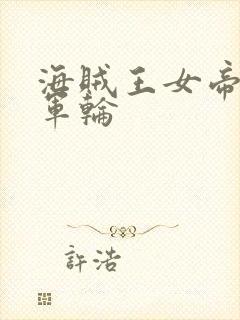 海賊王女帝
軍輪
許浩